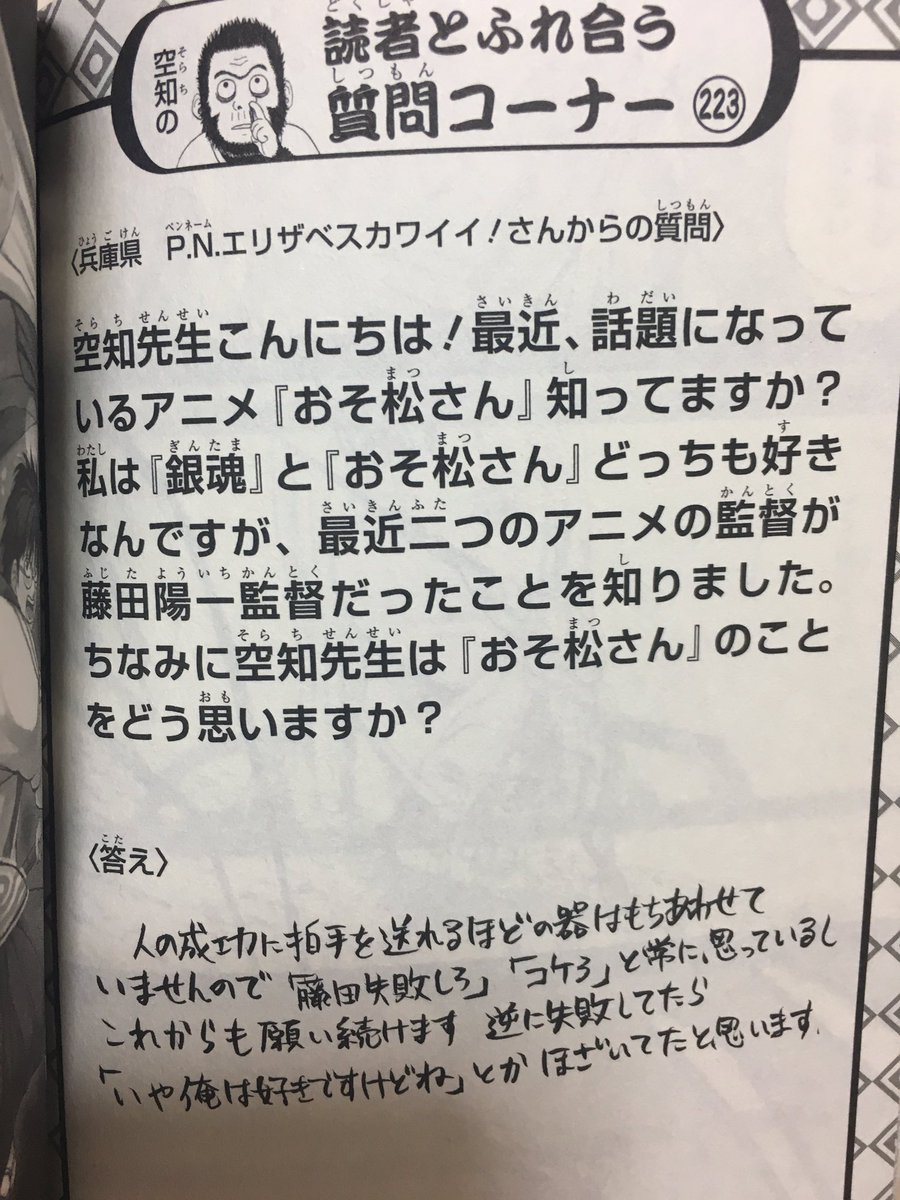 空知の
読者とふれ合う
質問コーナー 223
〈兵庫県 P.N.エリザベスカワイイ！さんからの質問〉
空知先生こんにちは！最近、話題になって
いるアニメ『おそ松さん』知ってますか？
私は『銀魂』と『おそ松さん』どっちも好き
なんですが、最近二つのアニメの監督が
藤田陽一監督だったことを知りました。
ちなみに空知先生は『おそ松さん』のこと
をどう思いますか？
〈答え〉
人の成功に拍手を送れるほどの器はもちあわせて
いませんので「藤田失敗しろ」「コケろ」と常に思っているし
これからも願い続けます 逆に失敗してたら
「いや俺は好きですけどね」とかほざいてたと思います.